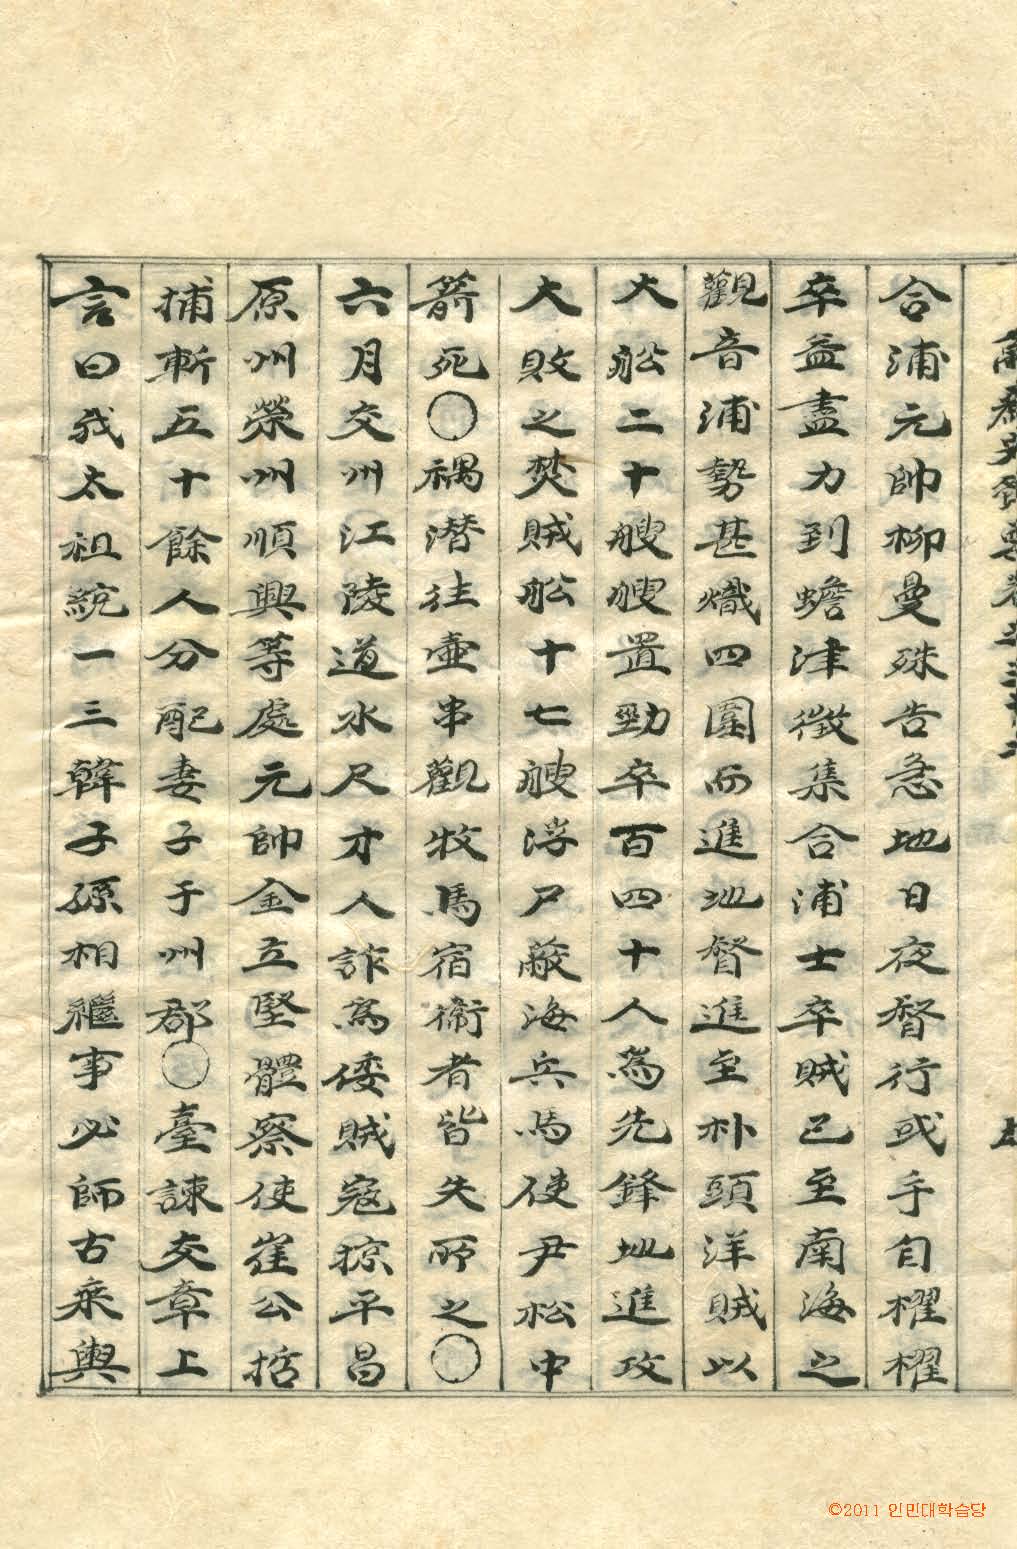 合浦元帥柳曼殊告急地日夜督行或手自櫂櫂
卒益盡力到蟾津徵集合浦士卒賊已至南海之
觀音浦勢甚熾四圍而進地督進至朴頭洋賊以
大舩二十艘艘置勁卒百四十人爲先鋒地進攻
大敗之焚賊舩十七艘浮尸蔽海兵馬使尹松中
箭死〇禑潛往壷串觀牧馬宿衛者皆失所之〇
六月交州江陵道水尺才人詐爲倭賊寇掠平昌
原州榮州順興等處元帥金立堅體察使崔公哲
捕斬五十餘人分配妻子于州郡〇臺諫交章上
言曰我太祖統一三韓子孫相繼事必師古乘輿
©2011 인민대학습당